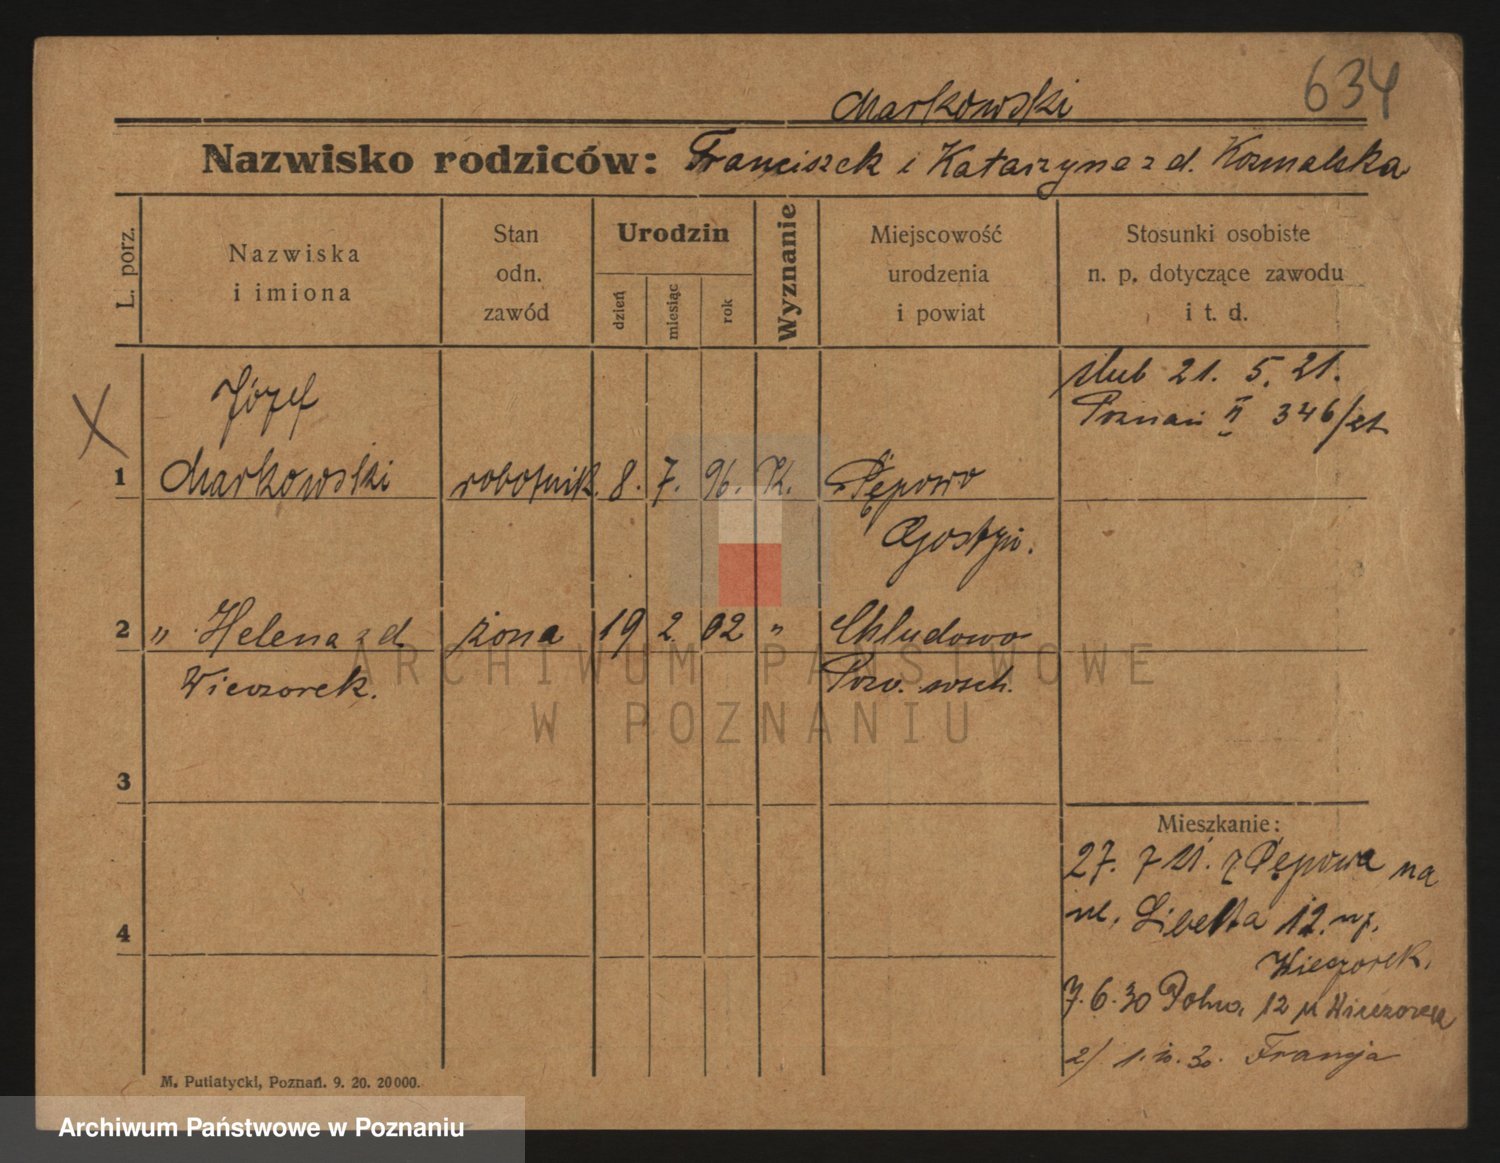 634
Markowski
Nazwisko rodziców: Franciszek i Katarzyna z d. Kozmalska
L. porz.
Nazwiska
i imiona
Stan
odn.
zawód
Urodzin
dzień
miesiąc
rok
Wyznanie
Miejscowość
urodzenia
i powiat
Stosunki osobiste
n. p. dotyczące zawodu
i t. d.
X
Józef
ślub 21. 5. 21.
Poznań II 346/21
1 Markowski robotnik. 8. 7. 96. K. Pępowo
Gostyń.
2 " Helena z d. żona 19 2. 02 " Chludowo
Wieczorek. Pozn. wsch.
3
Mieszkanie:
27. 7 21. z Pępowa na
ul. Libelta 12. np.
4
Wieczorek.
7. 6. 30 Polna 12 u Wieczorek
2) 1. 10. 30. Francja
M. Putiatycki, Poznań. 9. 20. 20000.
ARCHIWUM PAŃSTWOWE
W POZNANIU
Archiwum Państwowe w Poznaniu